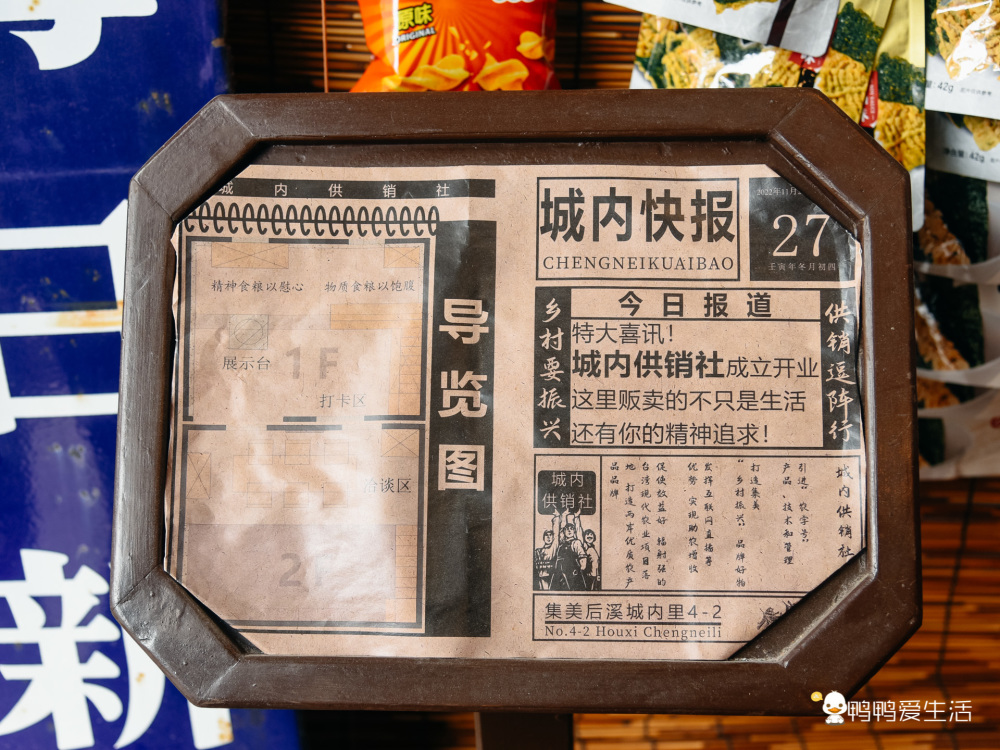 原味
ORIGINAL
42g
净含量:42g
城内供销社
精神食粮以慰心
物质食粮以饱腹
展示台
1F
打卡区
洽谈区
2F
导览图
城内快报
CHENGNEIKUAIBAO
2022年11月2
27
壬寅年冬月初四
乡村要振兴
今日报道
特大喜讯！
城内供销社成立开业
这里贩卖的不只是生活
还有你的精神追求！
供销逗阵行
城内供销社
引进“农字号”
产品、技术和管理
打造集美
“乡村振兴”品牌好物
发挥互联网直播等
优势 实现助农增收
促使效益好 辐射强的
台湾现代农业项目落
地 打造两岸优质农产
品品牌
城内
供销社
集美后溪城内里4-2
No.4-2 Houxi Chengneili
新
鸭鸭爱生活